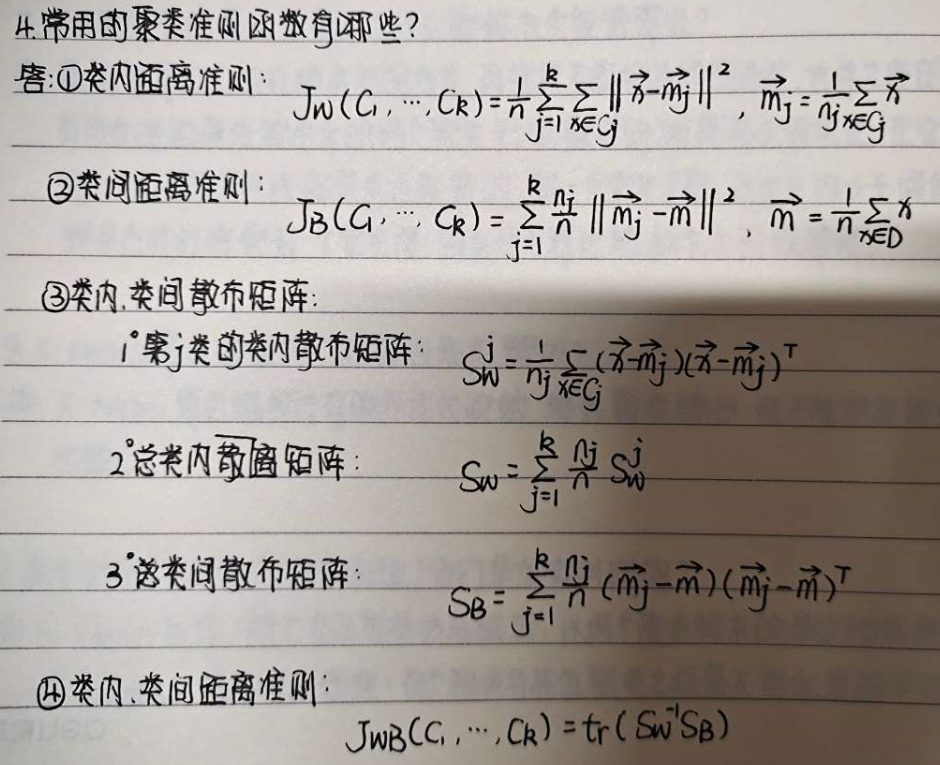 4.常用的聚类准则函数有哪些?
答:①类内距离准则: J_W(C₁,⋯,C_k)=1/n ∑_{j=1}^{k} ∑_{x∈C_j} ‖x⃗-m⃗_j‖², m⃗_j=1/n_j ∑_{x∈C_j} x⃗
②类间距离准则: J_B(C₁,⋯ C_k)=∑_{j=1}^{k} n_j/n ‖m⃗_j-m⃗‖², m⃗=1/n ∑_{x∈D} x
③类内、类间散布矩阵:
1°第j类的类内散布矩阵: S_W^j=1/n_j ∑_{x∈C_j} (x⃗-m⃗_j)(x⃗-m⃗_j)^T
2°总类内散离矩阵: S_W=∑_{j=1}^{k} n_j/n S_W^j
3°总类间散布矩阵: S_B=∑_{j=1}^{k} n_j/n (m⃗_j-m⃗)(m⃗_j-m⃗)^T
④类内、类间距离准则:
J_WB(C₁,⋯,C_k)=tr(S_W^{-1}S_B)